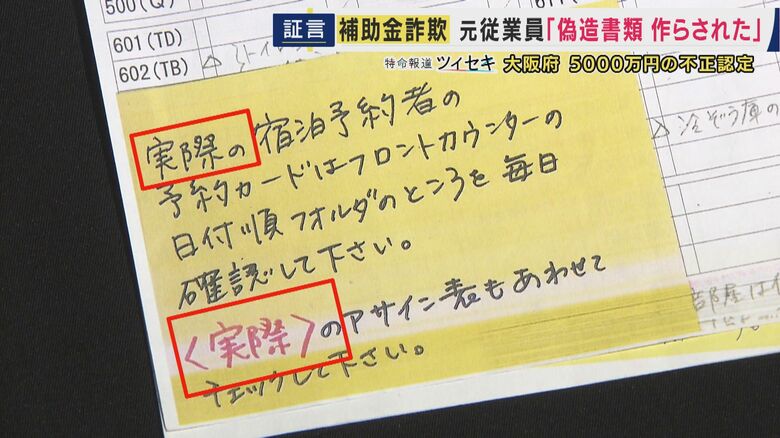 証言 補助金詐欺 元従業員「偽造書類 作らされた」
特命報道 ツイセキ 大阪府 5000万円の不正認定
500(Q)
601(TD)
602(TB)
冷ぞう庫の
実際の宿泊予約者の
予約カードはフロントカウンターの
日付順フォルダのところを毎日
確認して下さい。
〈実際〉のアサイン表もあわせて
チェックして下さい。
部屋は